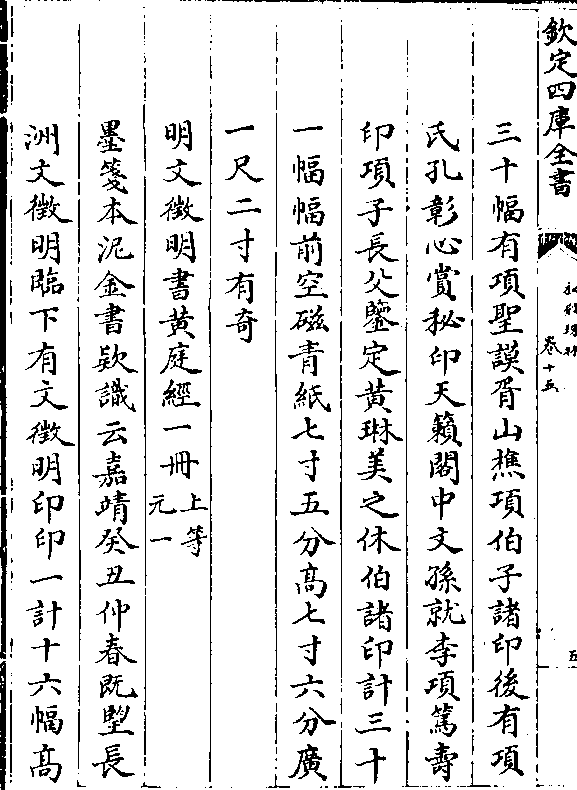 欽定四庫全書
卷十五
五
三十幅有項聖謨胥山樵項伯子諸印後有項
氏孔彰心賞秘印天籟閣中文孫就李項篤壽
印項子長父鑒定黄琳美之休伯諸印計三十
一幅幅前空磁青紙七寸五分高七寸六分廣
一尺二寸有奇
明文徵明書黄庭經一冊上等
元一
墨箋本泥金書款識云嘉靖癸丑仲春既望長
洲文徵明臨下有文徵明印印一計十六幅高